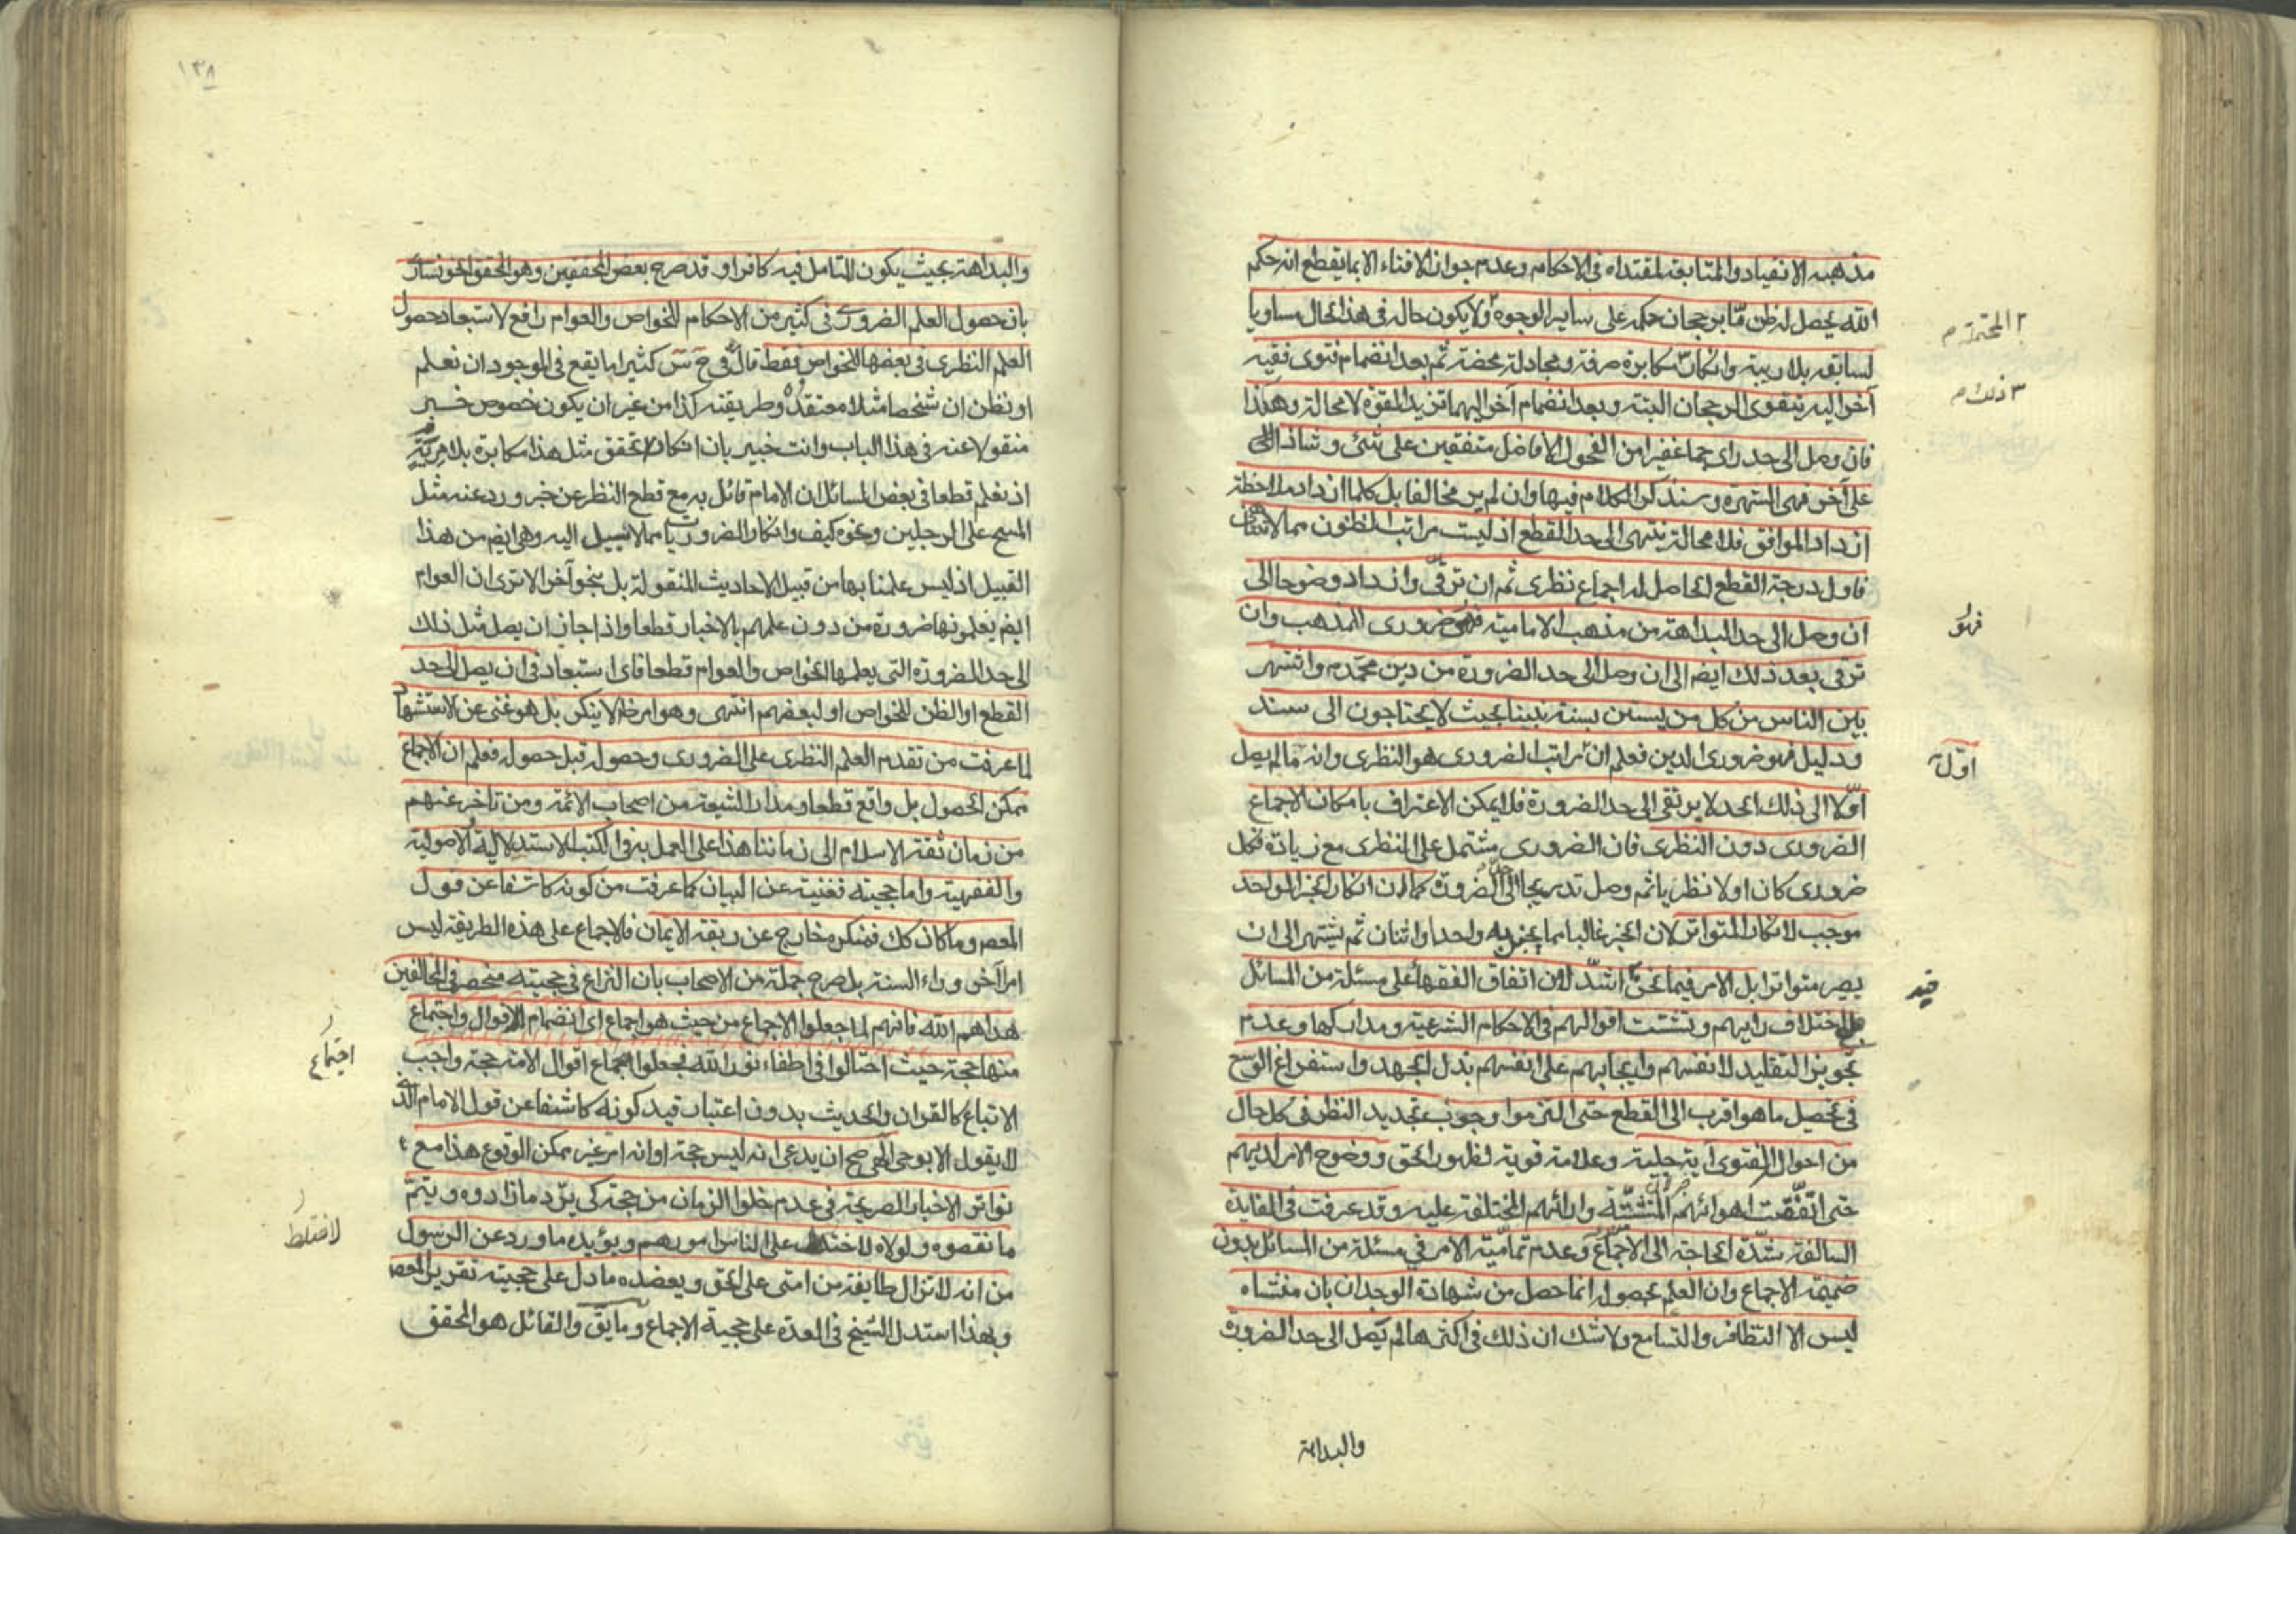 مذهبه الانقياد والمتابعة لمقتداه في الاحكام وعدم جواز الافتاء الا بما يقطع انه حكم
الله يحصل له ظن مّا برجحان حكمه على ساير الوجوه ولا يكون حاله في هذا الحال مساويا
لسابقه بلا ريبة وانكاره مكابرة صرفة ومجادلة محضة ثم بعد انضمام فتوى فقيه
آخر اليه يتقوى الرجحان البتة وبعد انضمام آخر اليهما تزيد القوة لا محالة وهكذا
فان وصل الى حد راى جما غفيرا من الفحول الافاضل متفقين على شئ وشاذا
على آخر فهى الشهرة وسنذكر الكلام فيها وان لم ير مخالفا بل كلما ازداد ملاحظة
ازداد الموافق فلا محالة ينتهى الى حد القطع اذ ليست مراتب الظنون مما لا تتناهى
فاول درجة القطع الحاصل له اجماع نظرى ثم ان ترقى وازداد وضوحا الى
ان وصل الى حد البداهة من مذهب الامامية فهو ضرورى المذهب وان
ترقى بعد ذلك ايضم الى ان وصل الى حد الضرورة من دين محمد م واشتهر
بين الناس من كل من يستن بسنة نبينا بحيث لا يحتاجون الى سند
ودليل فهو ضرورى الدين فعلم ان مراتب الضرورى هو النظرى وانه ما لم يصل
اوّلا الى ذلك الحد لا يرتقى الى حد الضرورة فلا يمكن الاعتراف بامكان الاجماع
الضرورى دون النظرى فان الضرورى مشتمل على النظرى مع زيادة فكل
ضرورى كان اولا نظريا ثم وصل تدريجا الى الضرورة كما ان انكار الخبر الواحد
موجب لانكار المتواتر لان الخبر غالبا مما يخبر به واحد او اثنان ثم ينتهى الى ان
يصير متواترا بل الامر فيما نحن اشدّ لان اتفاق الفقهاء على مسئلة من المسائل
مع اختلاف رايهم وتشتت اقوالهم في الاحكام الشرعية ومداركها وعدم
تجويز التقليد لانفسهم وايجابهم على انفسهم بذل الجهد واستفراغ الوسع
في تحصيل ما هو اقرب الى القطع حتى التزموا وجوب تجديد النظر في كل حال
من احوال الفتوى آية جلية وعلامة قوية لظهور الحق ووضوح الامر لديهم
حتى اتّفقت اهوائهم المتشتتة وارائهم المختلفة عليه وقد عرفت في الفايدة
السالفة شدّة الحاجة الى الاجماع وعدم تماميّة الامر في مسئلة من المسائل بدون
ضميمة الاجماع وان العلم بحصوله انما حصل من شهادة الوجدان بان منشاه
ليس الا التظافر والتسامع ولا شك ان ذلك في اكثرها لم يصل الى حد الضرورة
٢ المحتملة م
٣ ذلك م
فهو
اوّل
قيد
والبداهة
١٣٨
والبداهة بحيث يكون المتامل فيه كافرا وقد صرح بعض المحققين وهو المحقق الخونسارى
بان حصول العلم الضرورى في كثير من الاحكام للخواص والعوام رافع لاستبعاد حصول
العلم النظرى في بعضها للخواص فقط قال في ح س كثيرا ما يقع في الوجود ان نعلم
او نظن ان شخصا مثلا معتقده وطريقته كذا من غير ان يكون خصوص خبر
منقولا عنه في هذا الباب وانت خبير بان انكار تحقق مثل هذا مكابرة بلا مرية
اذ نعلم قطعا في بعض المسائل ان الامام قائل به مع قطع النظر عن خبر ورد عنه مثل
المسح على الرجلين ونحوه كيف وانكار الضروريات مما لا سبيل اليه وهى ايضم من هذا
القبيل اذ ليس علمنا بها من قبيل الاحاديث المنقولة بل بنحو آخر الا ترى ان العوام
ايضم يعلمونها ضرورة من دون علمهم بالاخبار قطعا واذا جاز ان يصل مثل ذلك
الى حد الضرورة التى يعلمها الخواص والعوام قطعا فاى استبعاد في ان يصل الى حد
القطع او الظن للخواص او لبعضهم انتهى وهو امر لا ينكر بل هو غنى عن الاستشهاد
لما عرفت من تقدم العلم النظرى على الضرورى وحصوله قبل حصوله فعلم ان الاجماع
ممكن الحصول بل واقع قطعا ومدار الشيعة من اصحاب الائمة ومن تاخر عنهم
من زمان ثقة الاسلام الى زماننا هذا على العمل به في الكتب الاستدلالية الاصولية
والفقهية واما حجيته فغنية عن البيان كما عرفت من كونه كاشفا عن قول
المعصم وما كان كك فمنكره خارج عن ربقة الايمان فالاجماع على هذه الطريقة ليس
امرا آخر وراء السنة بل صرح جملة من الاصحاب بان النزاع في حجيته منحصر في المخالفين
هداهم الله فانهم لما جعلوا الاجماع من حيث هو اجماع اى انضمام الاقوال واجتماع
منها حجة حيث احتالوا في اطفاء نور الله فجعلوا اجماع اقوال الامة حجة واجب
الاتباع كالقران والحديث بدون اعتبار قيد كونه كاشفا عن قول الامام الذى
لا يقول الا بوحى الهى صح ان يدعى انه ليس حجة او انه امر غير ممكن الوقوع هذا مع
تواتر الاخبار الصريحة في عدم خلوا الزمان من حجة كى يردّ ما زادوه ويتمّ
ما نقصوه ولولاه لاختلط على الناس امورهم ويؤيده ما ورد عن الرسول
من انه لا تزال طايفة من امتى على الحق ويعضده ما دل على حجيته تقرير المعصم
وبهذا استدل الشيخ في العدة على حجية الاجماع وما يق والقائل هو المحقق
اجتماع
لاختلط